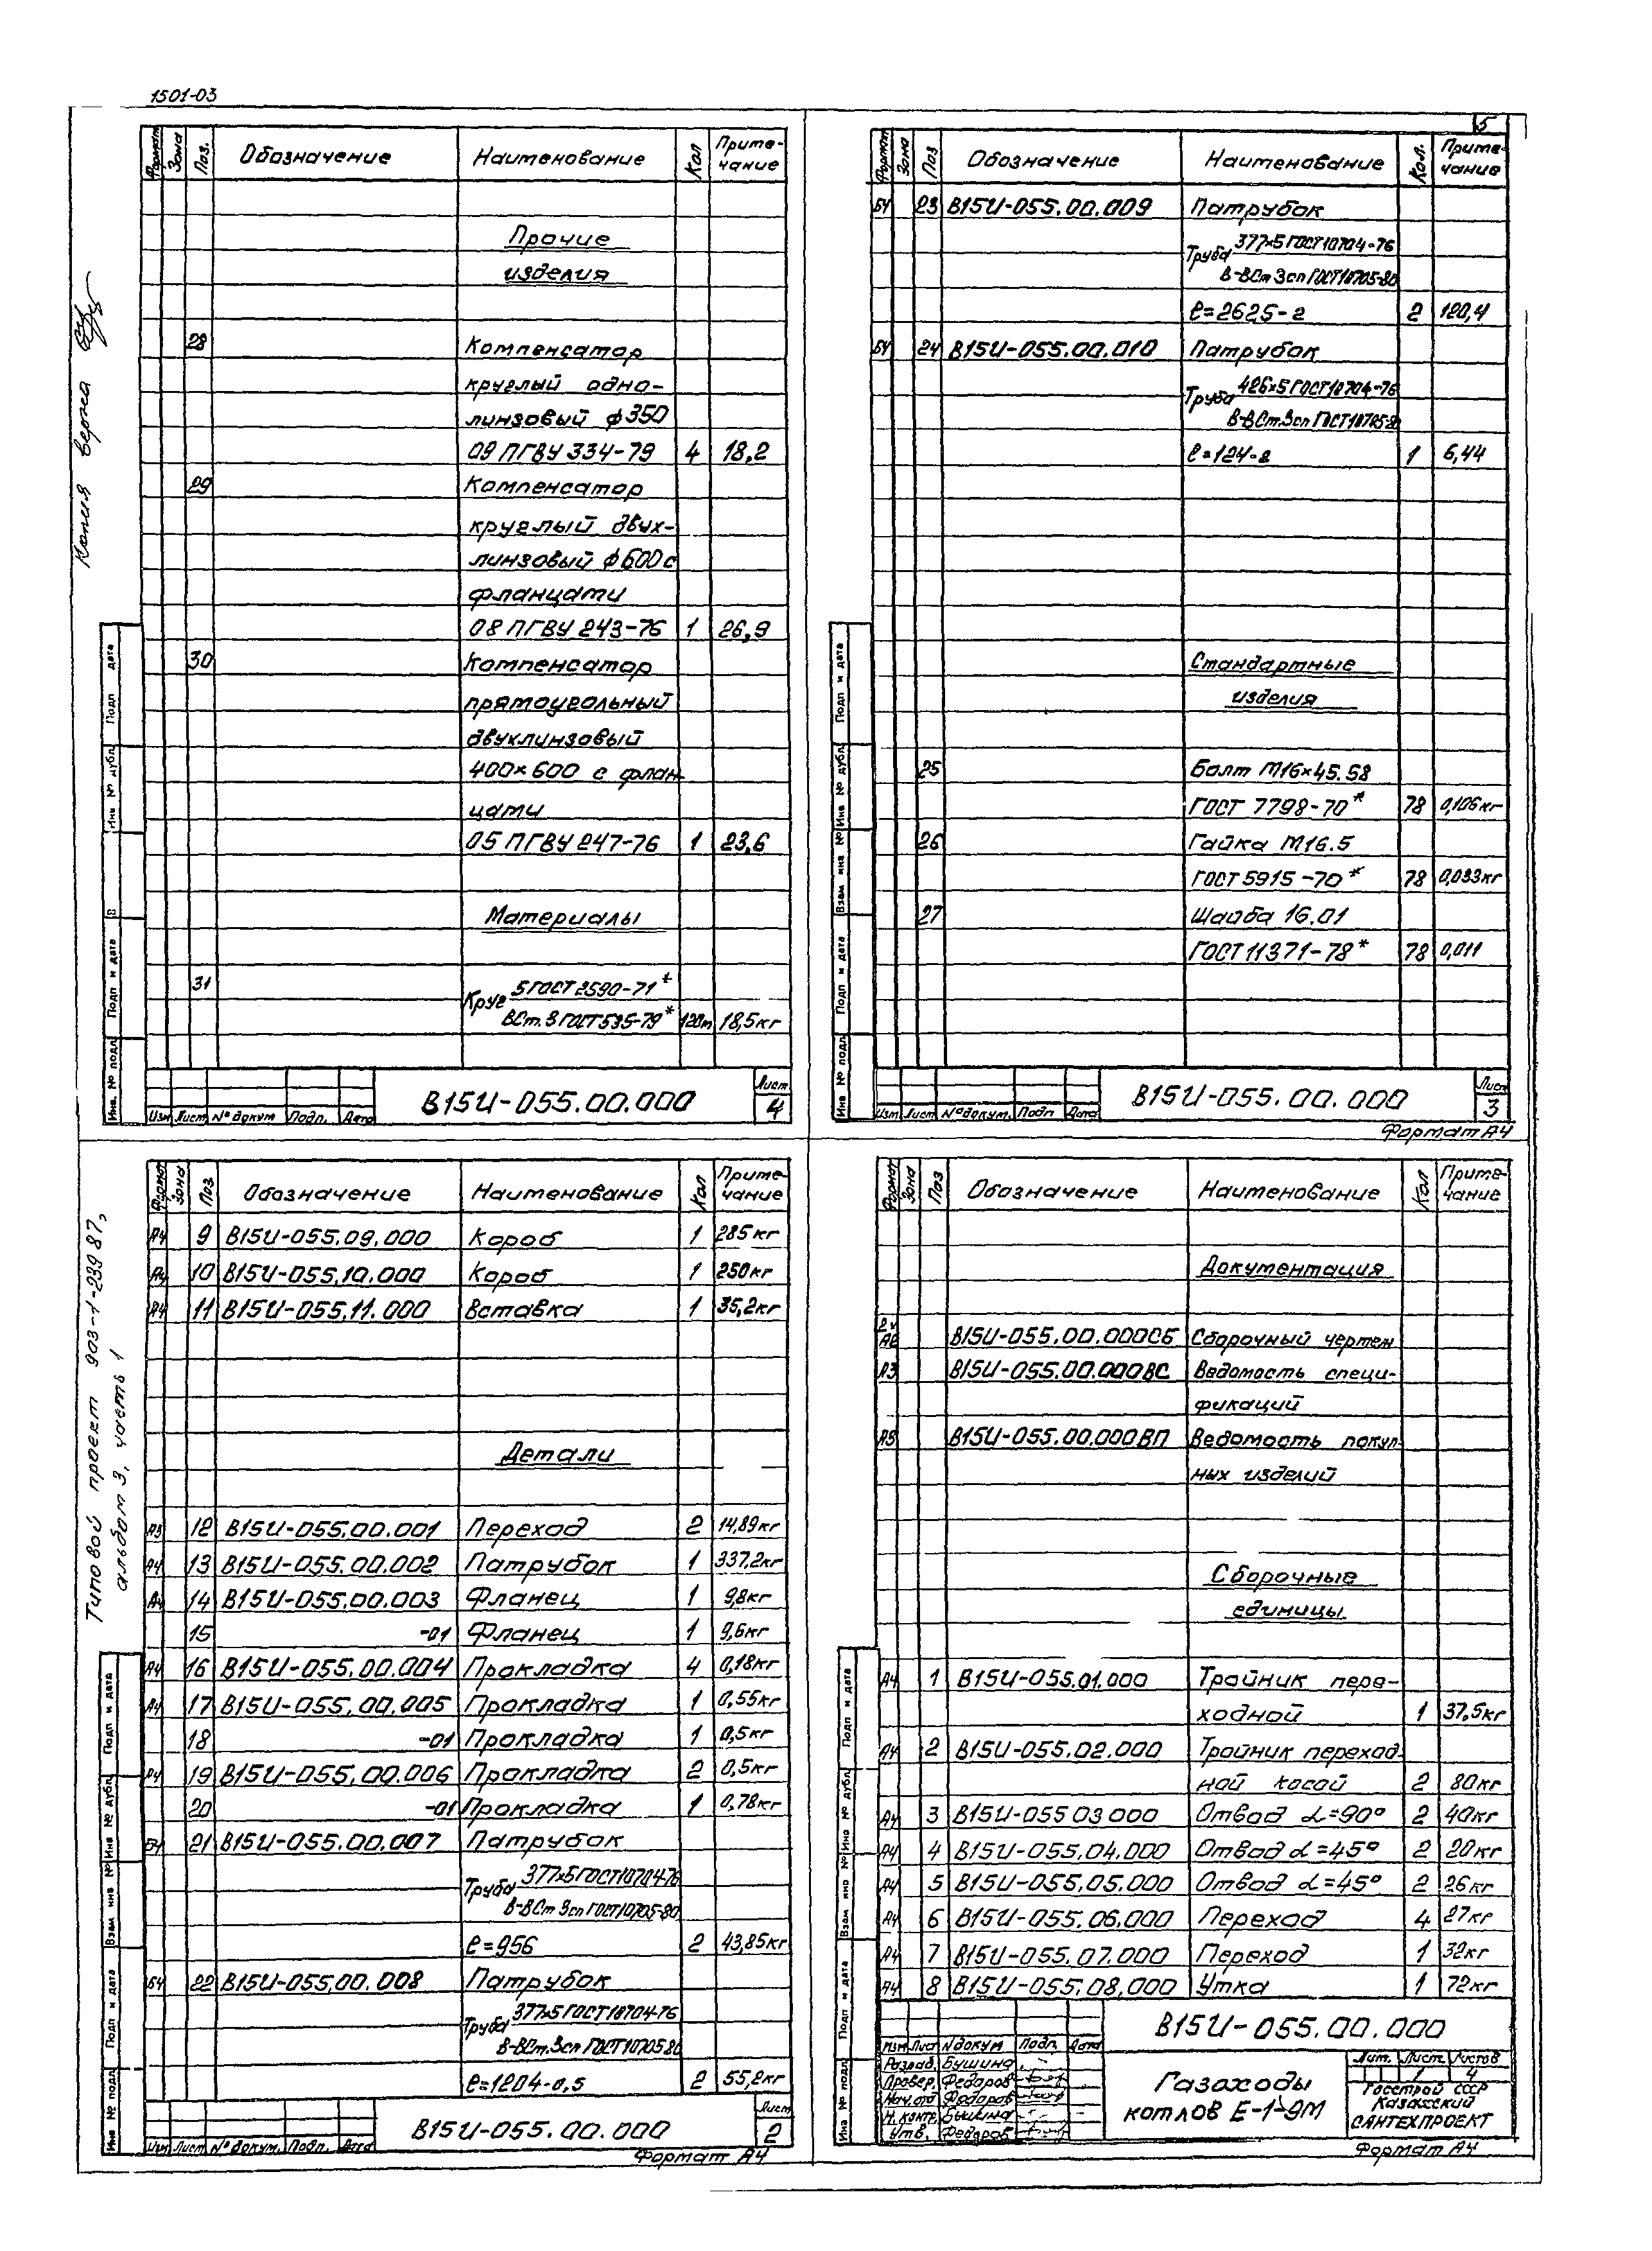 1501-03
Копия верна
Типовой проект 903-1-239 87,
альбом 3, часть 1
Формат Зона Поз. Обозначение Наименование Кол Приме-
чание
Прочие
изделия
28 Компенсатор
круглый одно-
линзовый ф350
09 ПГВУ 334-79 4 18,2
29 Компенсатор
круглый двух-
линзовый ф600 с
фланцами
08 ПГВУ 243-76 1 26,9
30 Компенсатор
прямоугольный
двухлинзовый
400×600 с флан
цами
05 ПГВУ 247-76 1 23,6
Материалы
31 Круг 5 ГОСТ 2590-71*
ВСт.3 ГОСТ 535-79* 120м 18,5кг
Изм Лист № докум Подп. Дата
В15И-055.00.000
Лист
4
5
Формат Зона Поз Обозначение Наименование Кол. Приме-
чание
БЧ 23 В15И-055.00.009 Патрубок
Труба 377×5 ГОСТ 10704-76
В-ВСт 3сп ГОСТ 10705-80
ℓ=2625-2 2 120,4
БЧ 24 В15И-055.00.010 Патрубок
Труба 426×5 ГОСТ 10704-76
В-ВСт.3сп ГОСТ 10705-8
ℓ=124-2 1 6,44
Стандартные
изделия
25 Болт М16×45.58
ГОСТ 7798-70* 78 0,106кг
26 Гайка М16.5
ГОСТ 5915-70* 78 0,033кг
27 Шайба 16.01
ГОСТ 11371-78* 78 0,011
Изм Лист № докум. Подп Дата
В15И-055.00.000
Лист
3
Формат А4
Формат Зона Поз Обозначение Наименование Кол Приме-
чание
А4 9 В15И-055.09.000 Короб 1 285кг
А4 10 В15И-055.10.000 Короб 1 250кг
А4 11 В15И-055.11.000 Вставка 1 35,2кг
Детали
А3 12 В15И-055.00.001 Переход 2 14,89кг
А4 13 В15И-055.00.002 Патрубок 1 337,2кг
А4 14 В15И-055.00.003 Фланец 1 9,8кг
15 -01 Фланец 1 9,6кг
А4 16 В15И-055.00.004 Прокладка 4 0,18кг
А4 17 В15И-055.00.005 Прокладка 1 0,55кг
18 -01 Прокладка 1 0,5кг
А4 19 В15И-055.00.006 Прокладка 2 0,5кг
20 -01 Прокладка 1 0,78кг
БЧ 21 В15И-055.00.007 Патрубок
Труба 377×5 ГОСТ 10704-76
В-ВСт 3сп ГОСТ 10705-80
ℓ=956 2 43,85кг
БЧ 22 В15И-055.00.008 Патрубок
Труба 377×5 ГОСТ 10704-76
В-ВСт.3сп ГОСТ 10705 80
ℓ=1204-0,5 2 55,2кг
Изм Лист № докум. Подп. Дата
В15И-055.00.000
Лист
2
Формат А4
Формат Зона Поз Обозначение Наименование Кол Приме-
чание
Документация
2× А2 В15И-055.00.000СБ Сборочный чертеж
А3 В15И-055.00.000ВС Ведомость специ-
фикаций
А3 В15И-055.00.000ВП Ведомость покуп
ных изделий
Сборочные
единицы
А4 1 В15И-055.01.000 Тройник пере-
ходной 1 37,5кг
А4 2 В15И-055.02.000 Тройник переход
ной косой 2 80кг
А4 3 В15И-055 03 000 Отвод α=90° 2 40кг
А4 4 В15И-055.04.000 Отвод α=45° 2 20кг
А4 5 В15И-055.05.000 Отвод α=45° 2 26кг
А4 6 В15И-055.06.000 Переход 4 27кг
А4 7 В15И-055.07.000 Переход 1 32кг
А4 8 В15И-055.08.000 Утка 1 72кг
В15И-055.00.000
Изм Лист N докум Подп. Дата
Разраб. Бушина
Провер. Федоров
Нач.отд Федоров
Н. контр. Бушина
Утв. Федоров
Газоходы
котлов Е-1-9М
Лит. Лист Листов
1 4
Госстрой СССР
Казахский
САНТЕХПРОЕКТ
Формат А4
Инв. № подл Подп и дата Взам инв № Инв № дубл Подп и дата